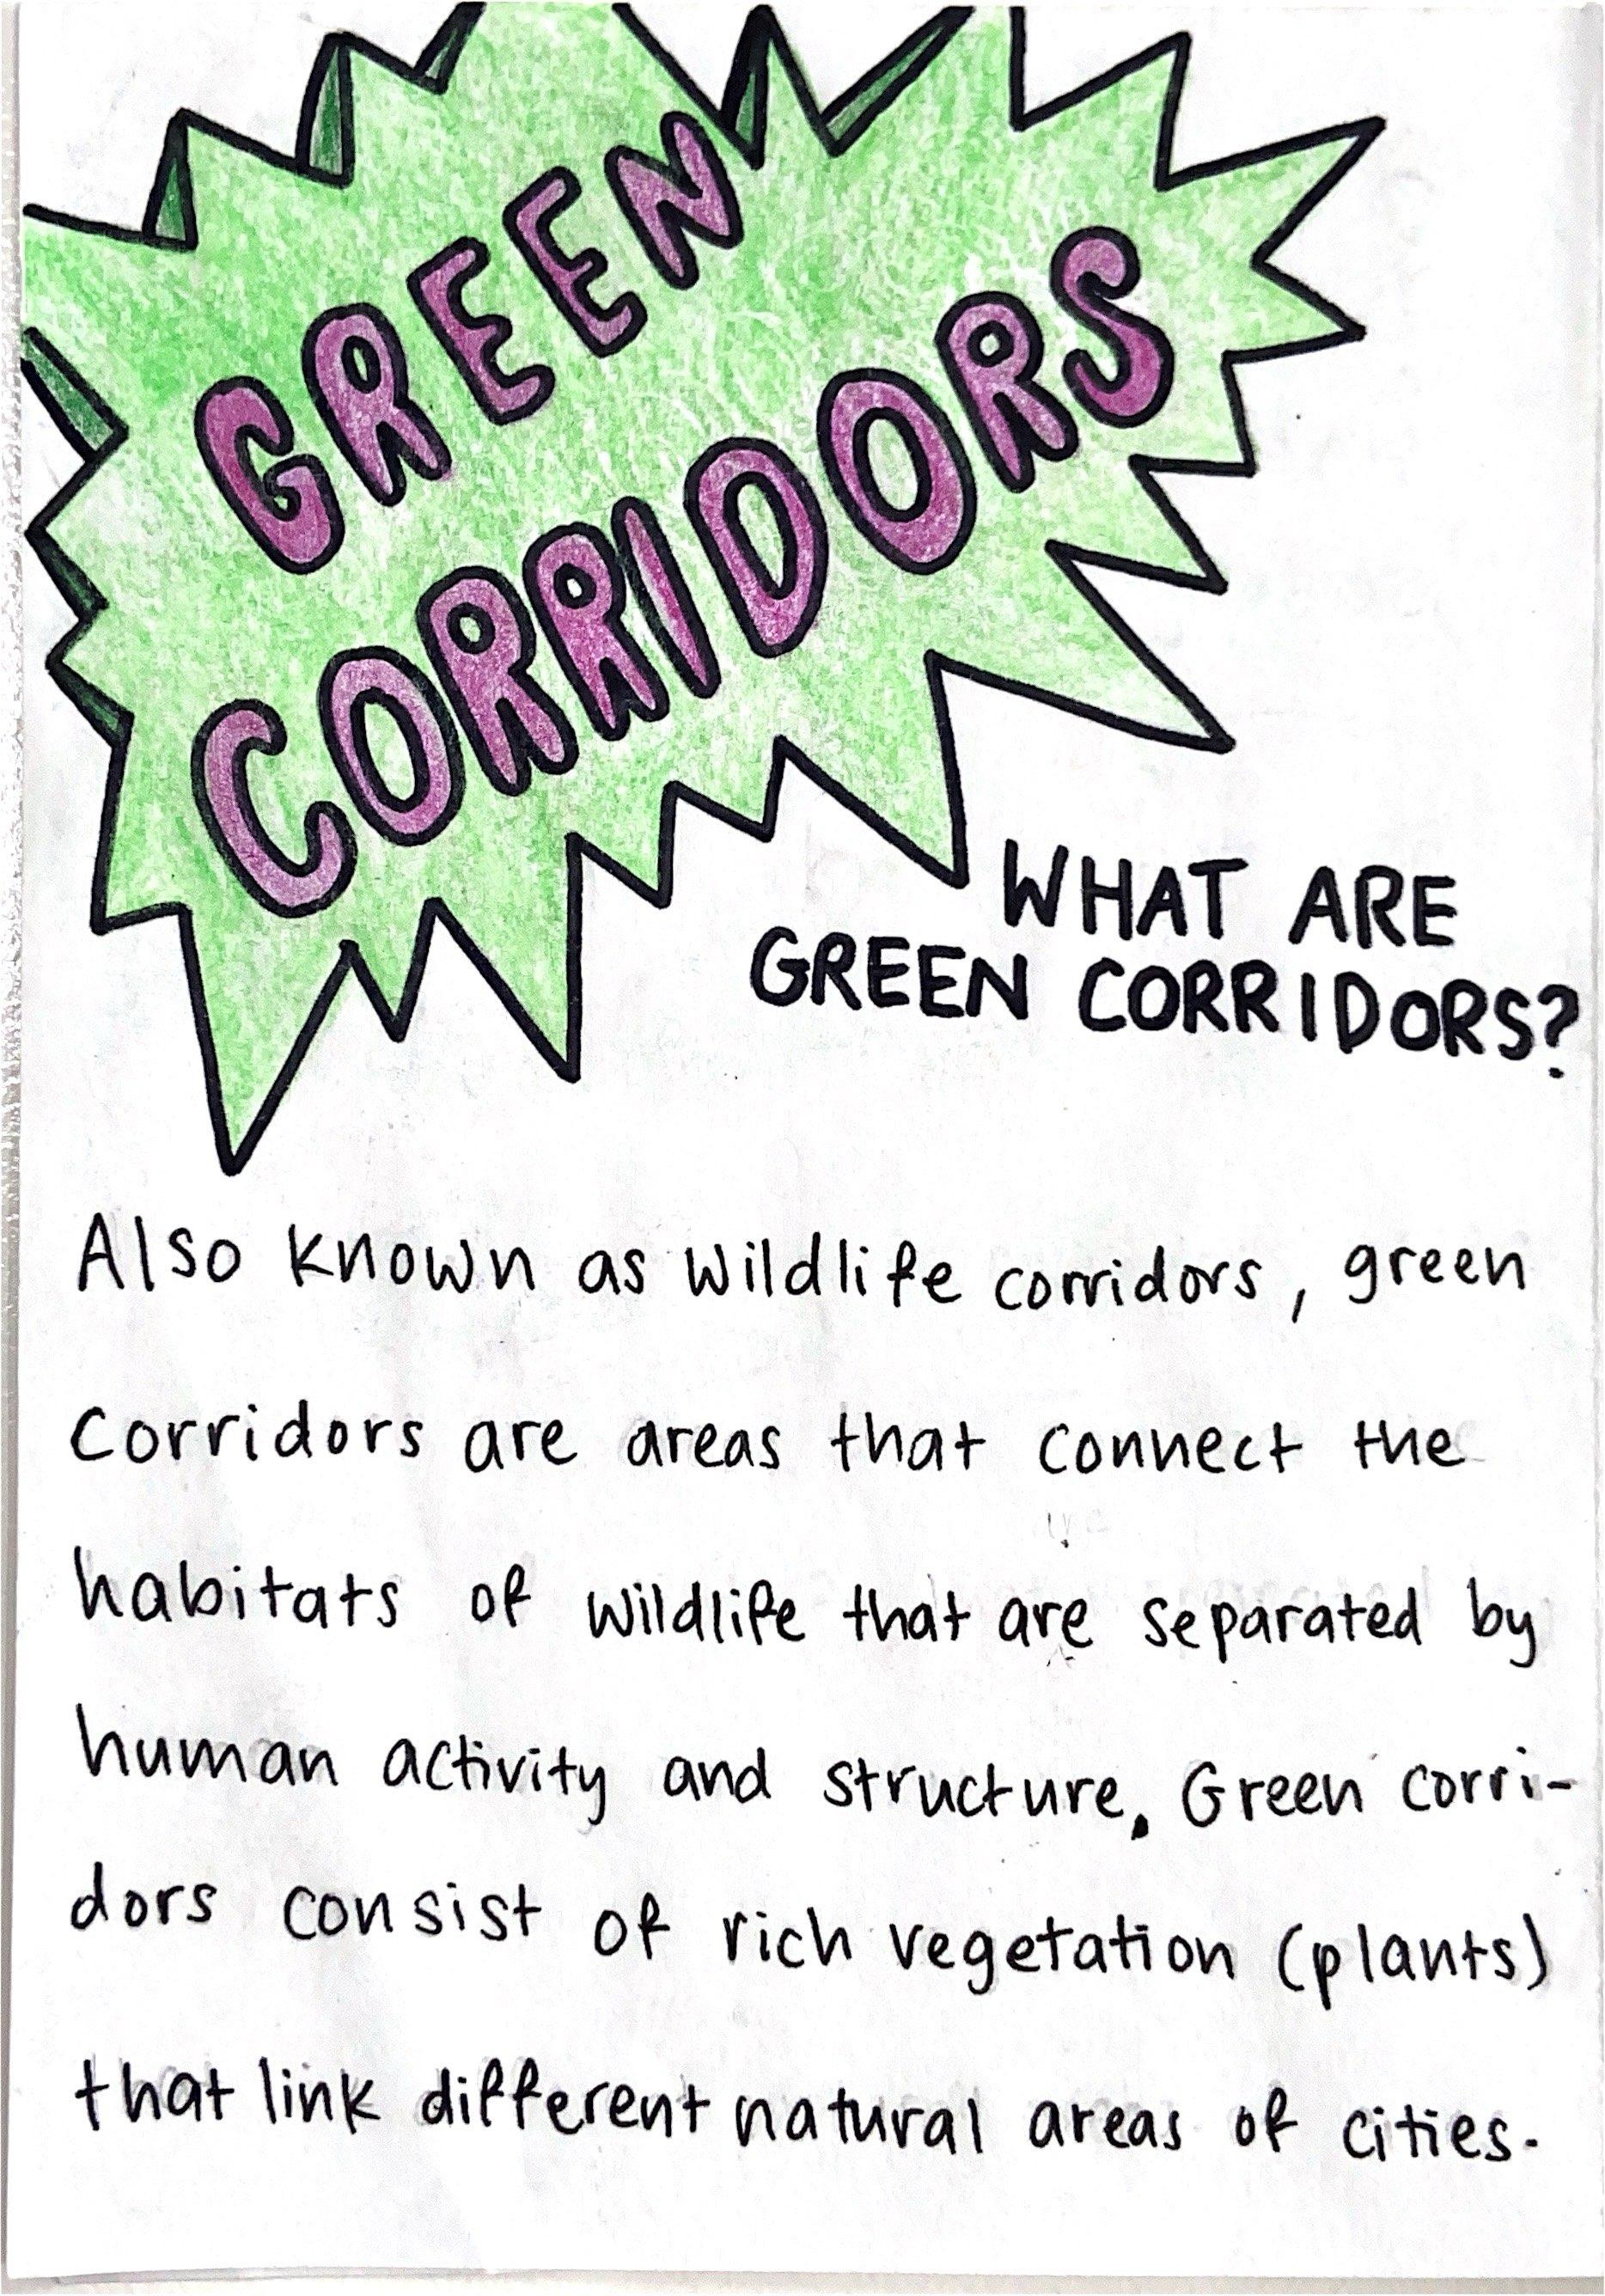 GREEN
CORRIDORS
WHAT ARE
GREEN CORRIDORS?
Also known as wildlife corridors, green
corridors are areas that connect the
habitats of wildlife that are separated by
human activity and structure. Green corri-
dors consist of rich vegetation (plants)
that link different natural areas of cities.